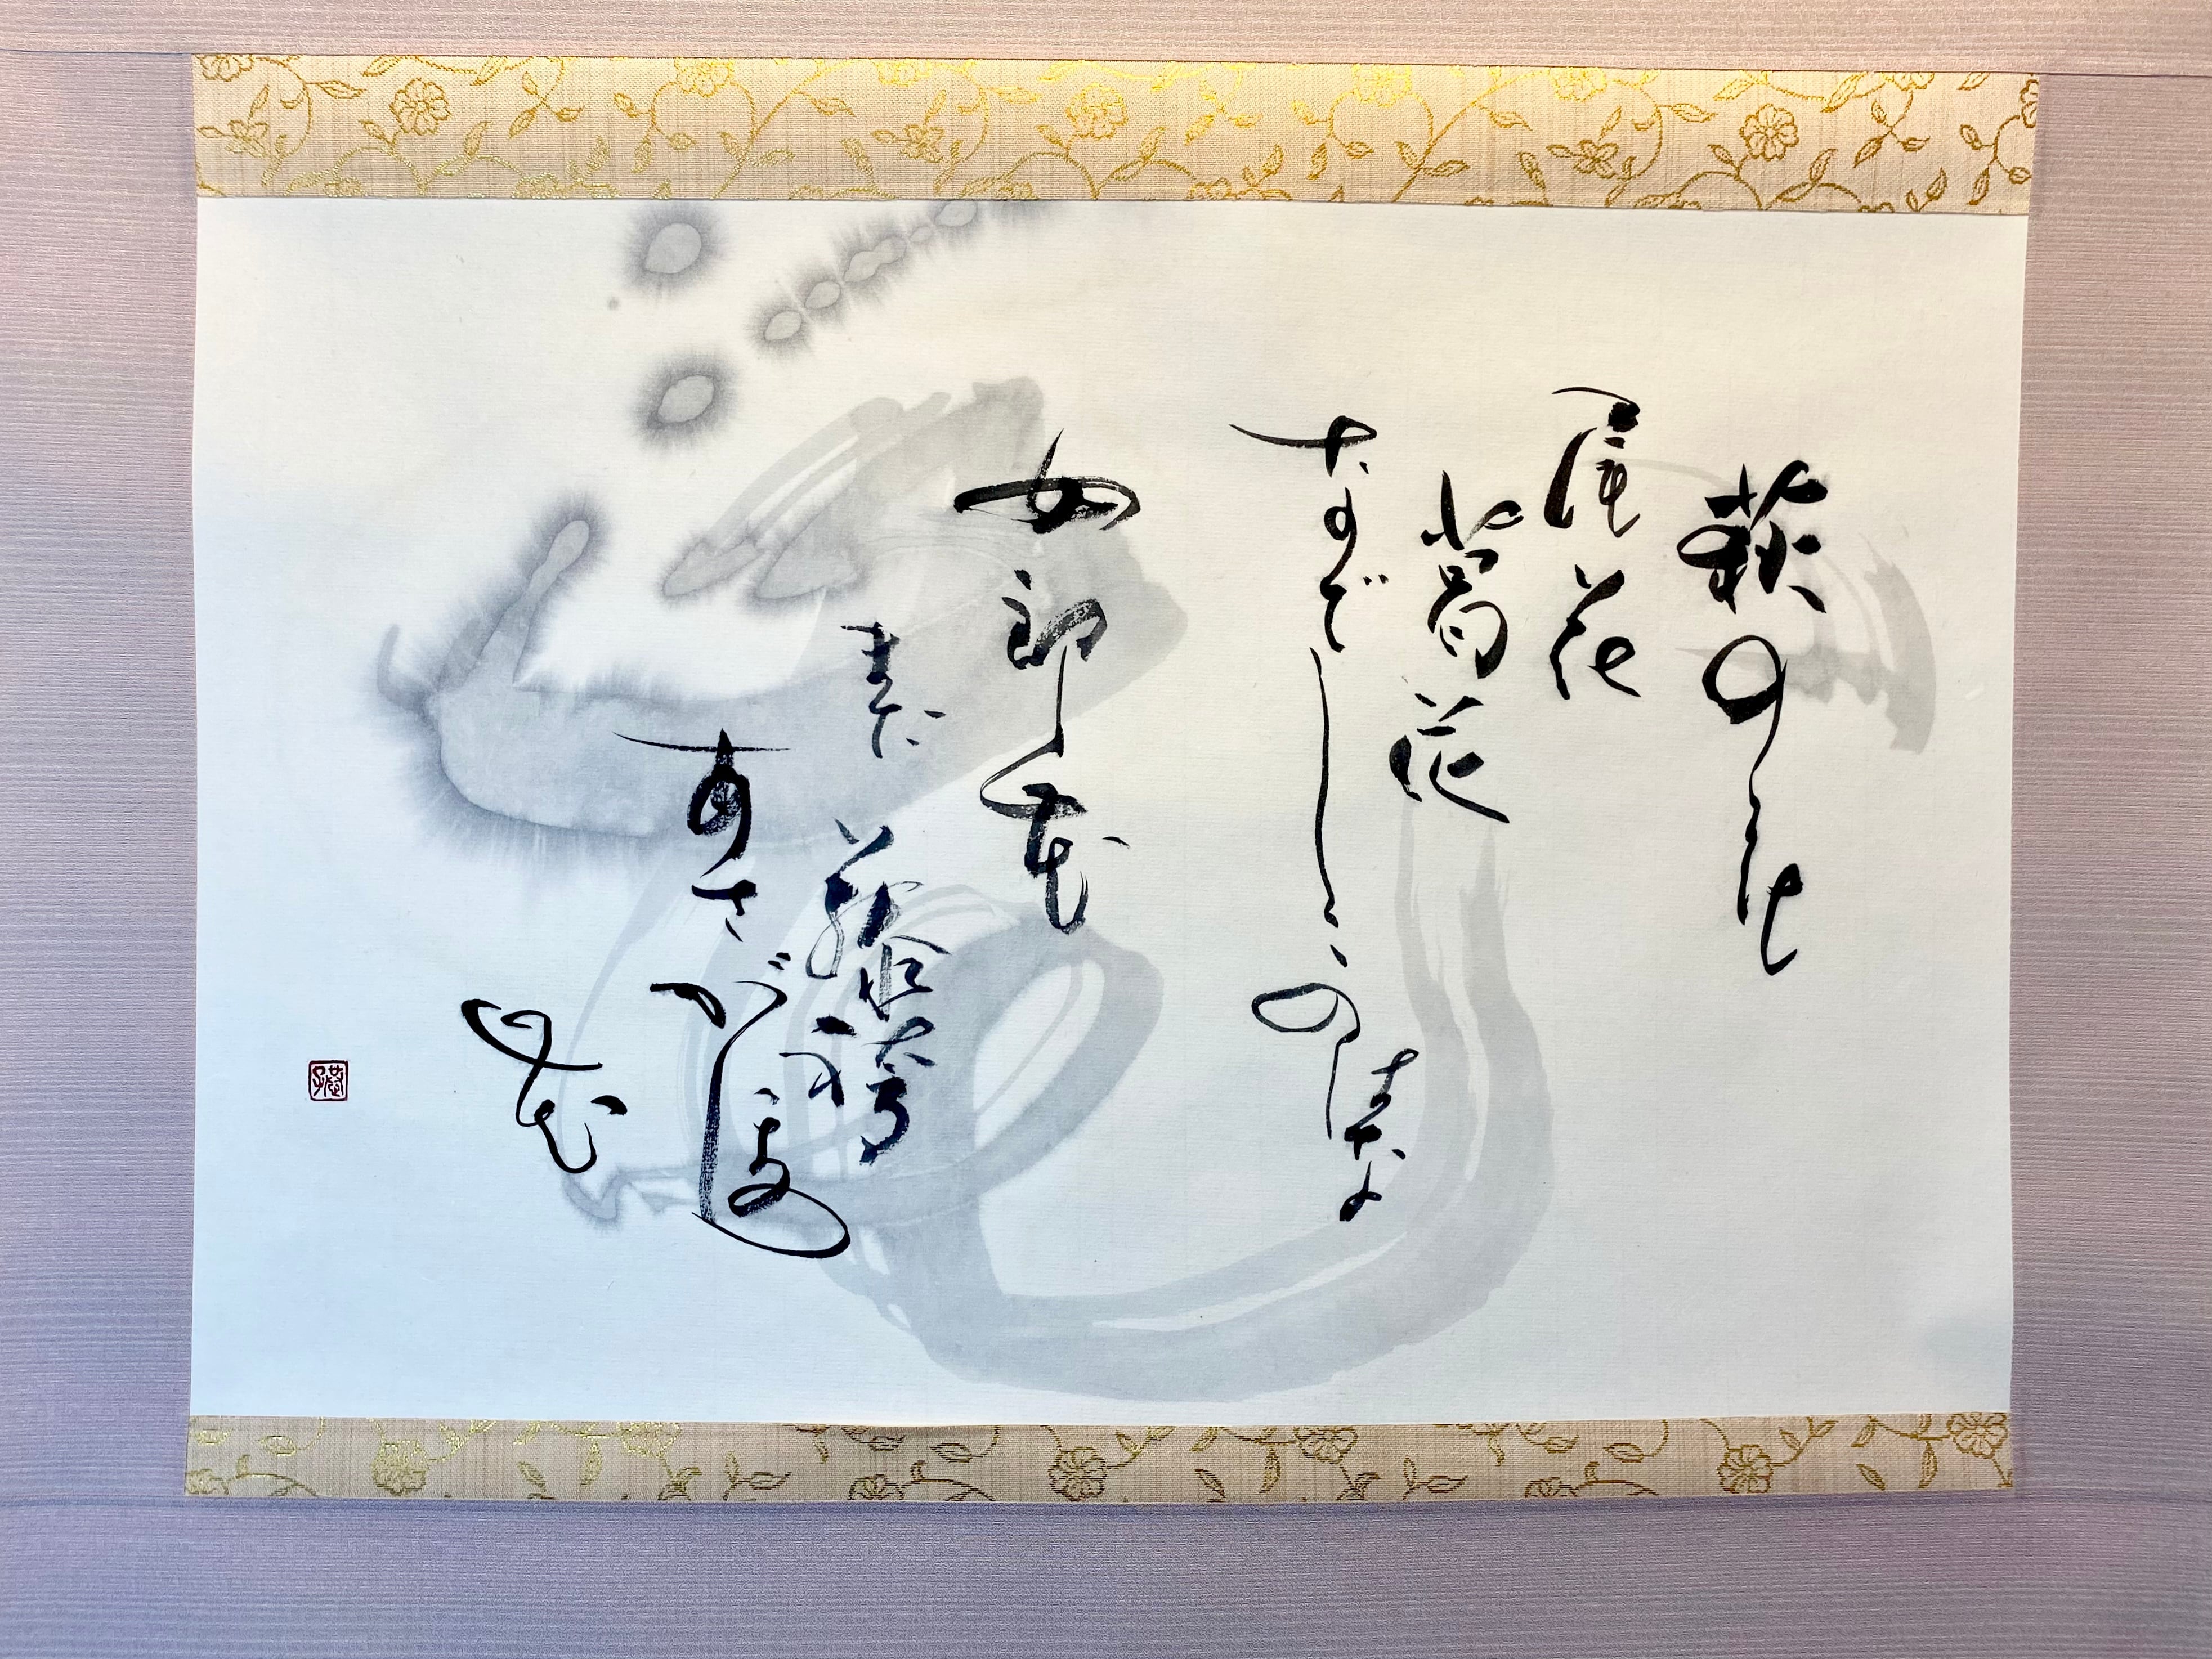 萩のはな
尾花
葛花
なでしこの
はな
女郎花
また
藤袴
あさがほ
の花